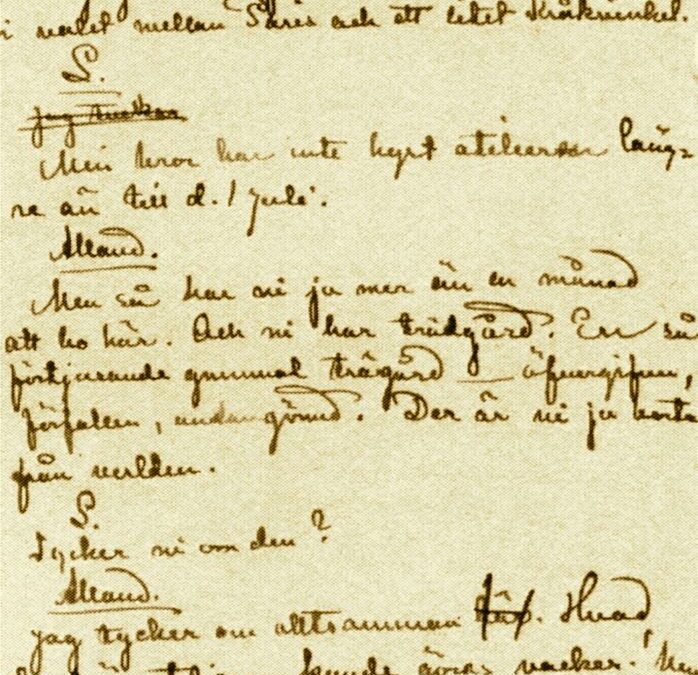 i valet mellan Paris och ett litet Kråkvinkel.
S.
jag tackar
Men bror har inte hyrt atelieren läng-
re än till d. 1 Juli.
Alland.
Men så har ni ju mer än en månad
att bo här. Och ni har trädgård. En så
förtjusande gammal trägård — öfvergifven,
förfallen, undangömd. Der är ni ju borta
från verlden.
S.
Tycker ni om den?
Alland.
Jag tycker om alltsamman här. Hvad
kunde vacker.